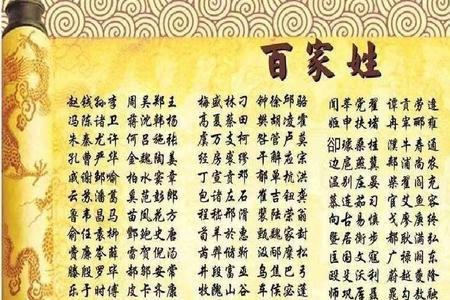 百家姓
赵钱孙李 周吴郑王
冯陈诸卫 蒋沈韩杨
朱秦尤许 何吕施张
孔曹严华 金魏陶姜
戚谢邹喻 柏水窦章
云苏潘葛 奚范彭郎
鲁韦昌马 苗凤花方
俞任袁柳 鲍史唐
费廉岑薛 雷贺倪汤
滕殷罗毕 郝邬安常
乐于时傅 皮卞齐康
梅盛林刁 钟徐邱骆
高夏蔡田 樊胡凌霍
虞万支柯 昝管卢莫
经房裘缪 干解应宗
丁宣贲邓 郁单杭洪
包诸左石 崔吉钮龚
程嵇邢滑 裴陆荣翁
荀羊於惠 甄曲家封
芮羿储靳 汲邴糜松
井段富巫 乌焦巴弓
牧隗山谷 车侯宓蓬
闻莘党翟 谭贡劳逄
姬申扶堵 冉宰郦雍
卻璩桑桂 濮牛寿通
边扈燕冀 郏浦尚农
温别庄晏 柴瞿阎充
慕连茹习 宦艾鱼容
向古易慎 戈廖庾终
暨居衡步 都耿满弘
匡国文寇 广禄阙东
殳沃利 蔚越夔隆